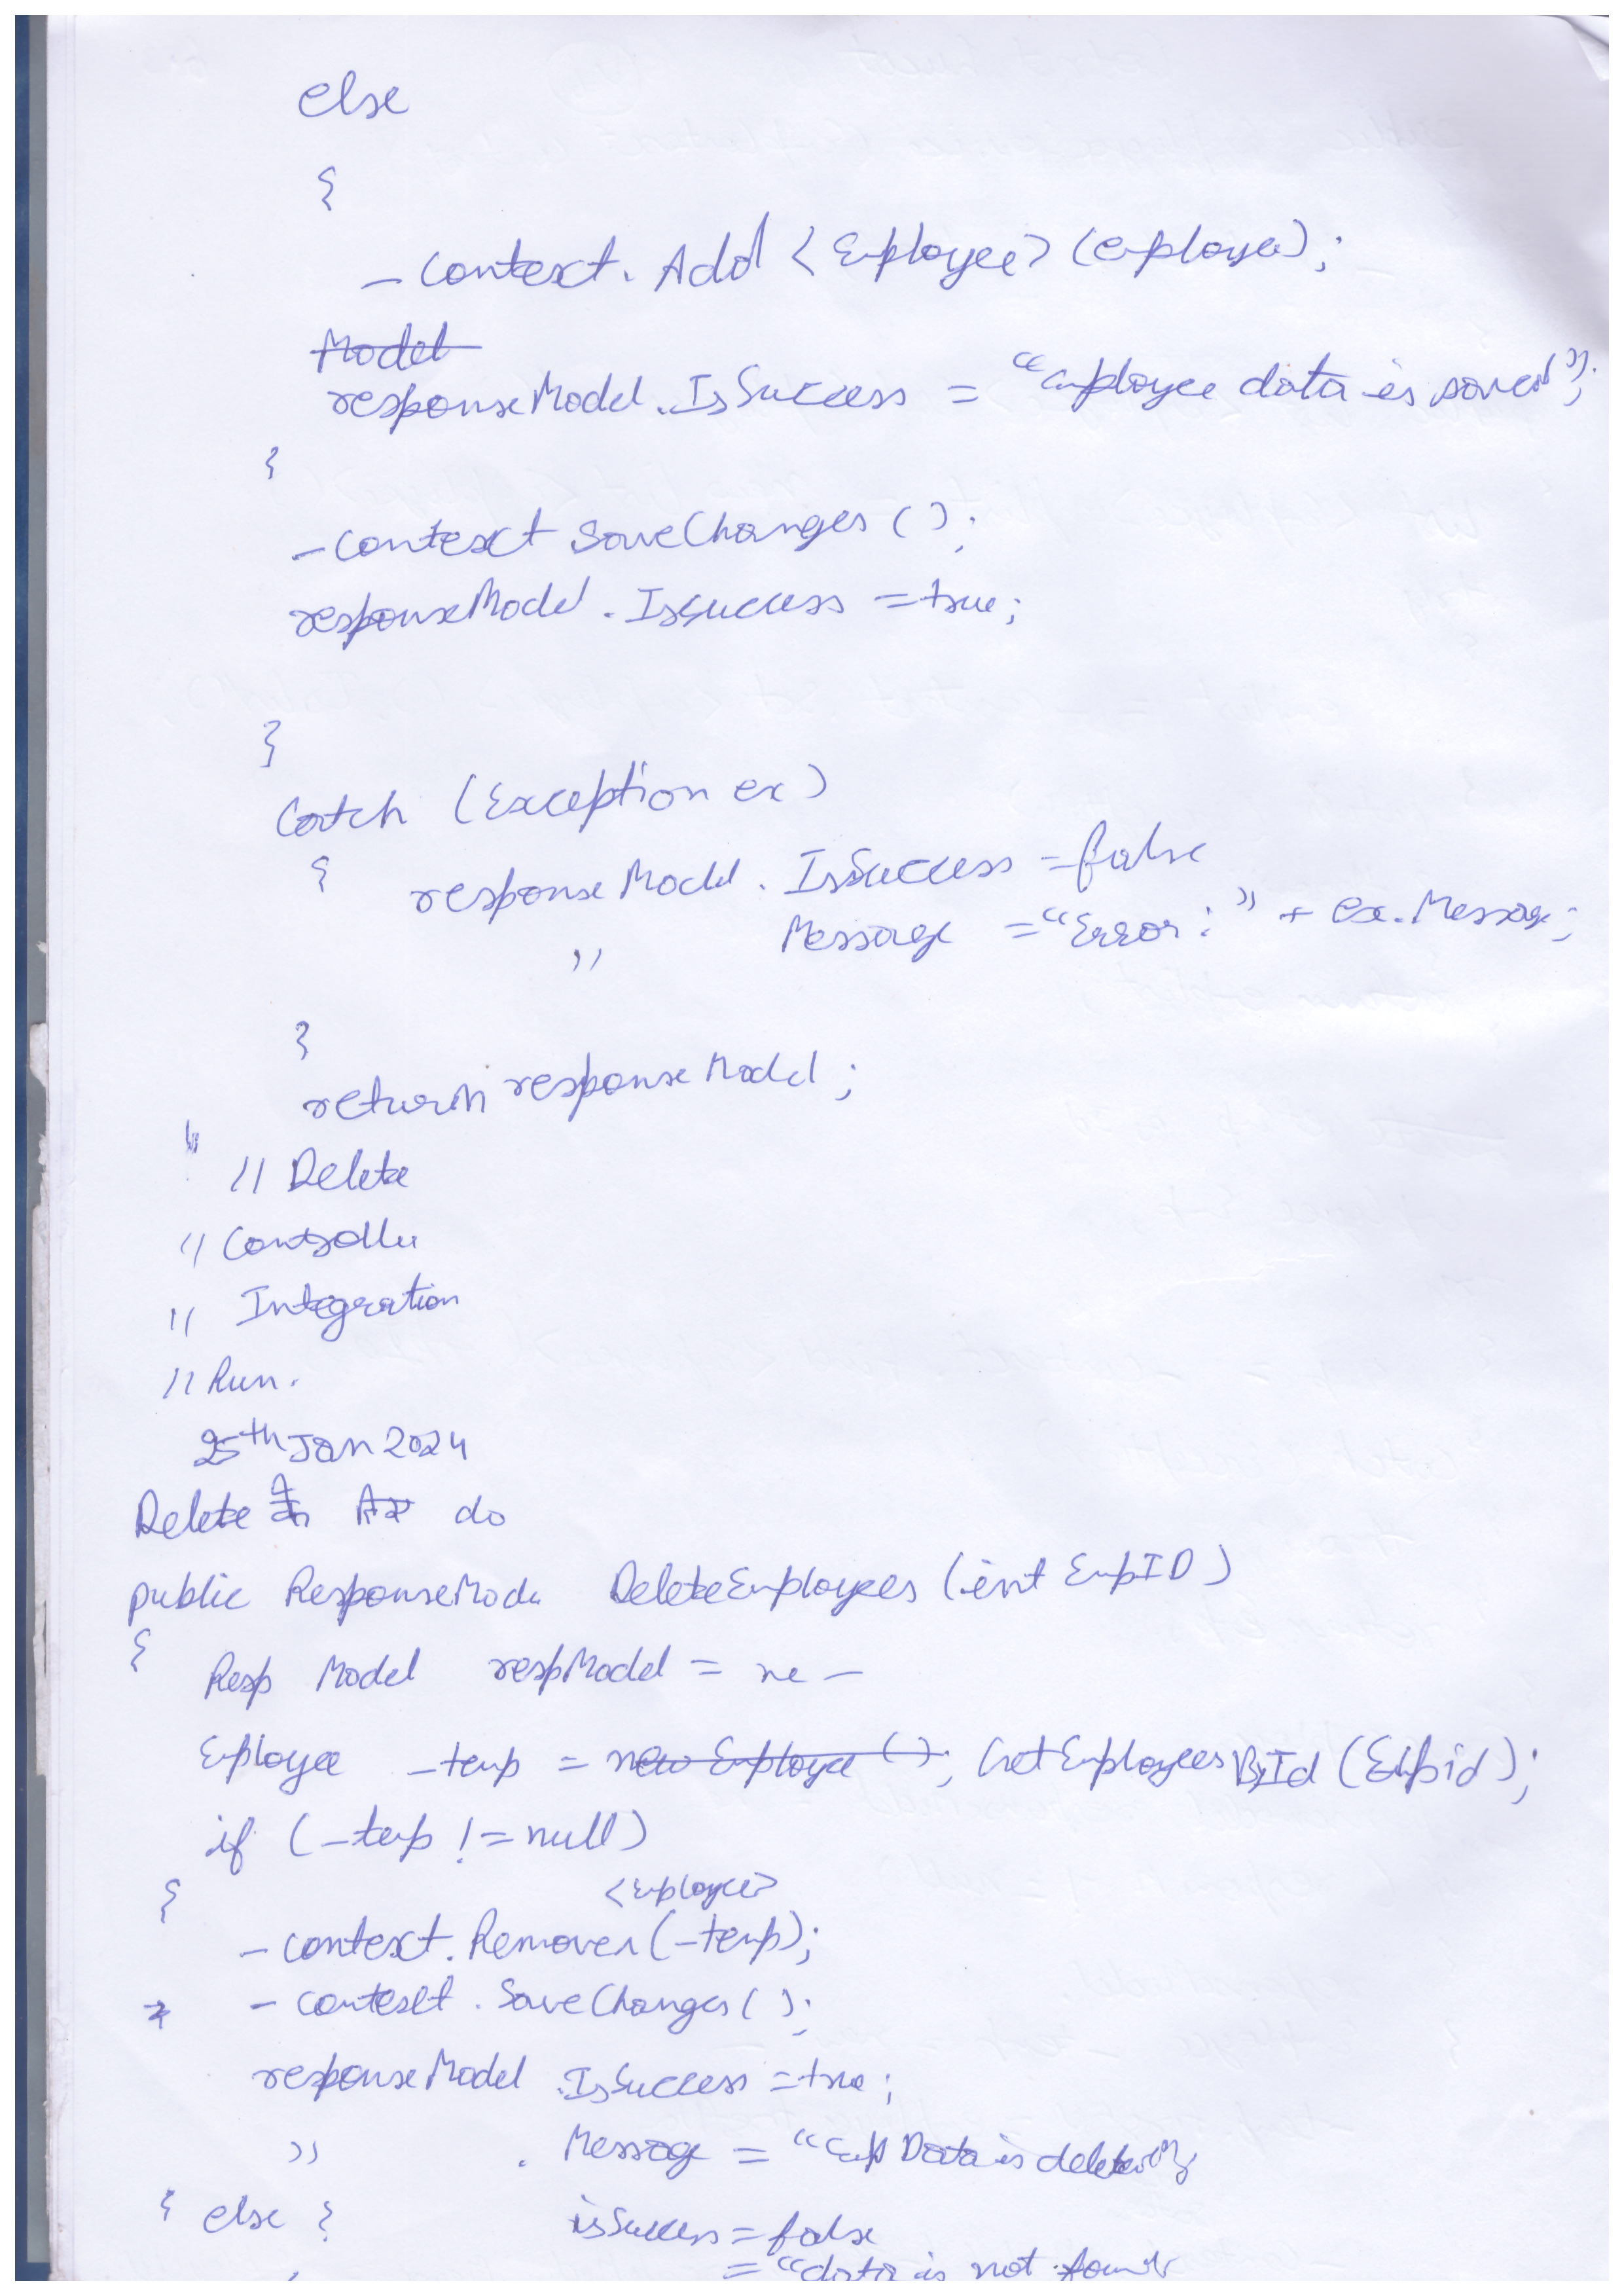 else
{
_context. Add <Employee> (employee);
Model
responseModel.IsSuccess = "employee data is saved";
}
_context.SaveChanges ();
responseModel.Issuccess = true;
}
Catch (Exception ex)
{ responseModel. IsSuccess = false
" Message = "Error: " + ex.Message;
}
return responseModel;
// Delete
// Controller
// Integration
// Run.
25th Jan 2024
Delete do
public ResponseMode DeleteEmployees (int EmpID)
{
Resp Model respModel = ne -
Employee _temp = new Employee (); GetEmployeesById (Empid);
if (_temp != null)
{ <Employee>
_context.Remove (_temp);
_context.SaveChanges ();
responseModel .IsSuccess = true;
" . Message = "Emp Data is deleted";
} else { isSuccess = false
= "data is not found